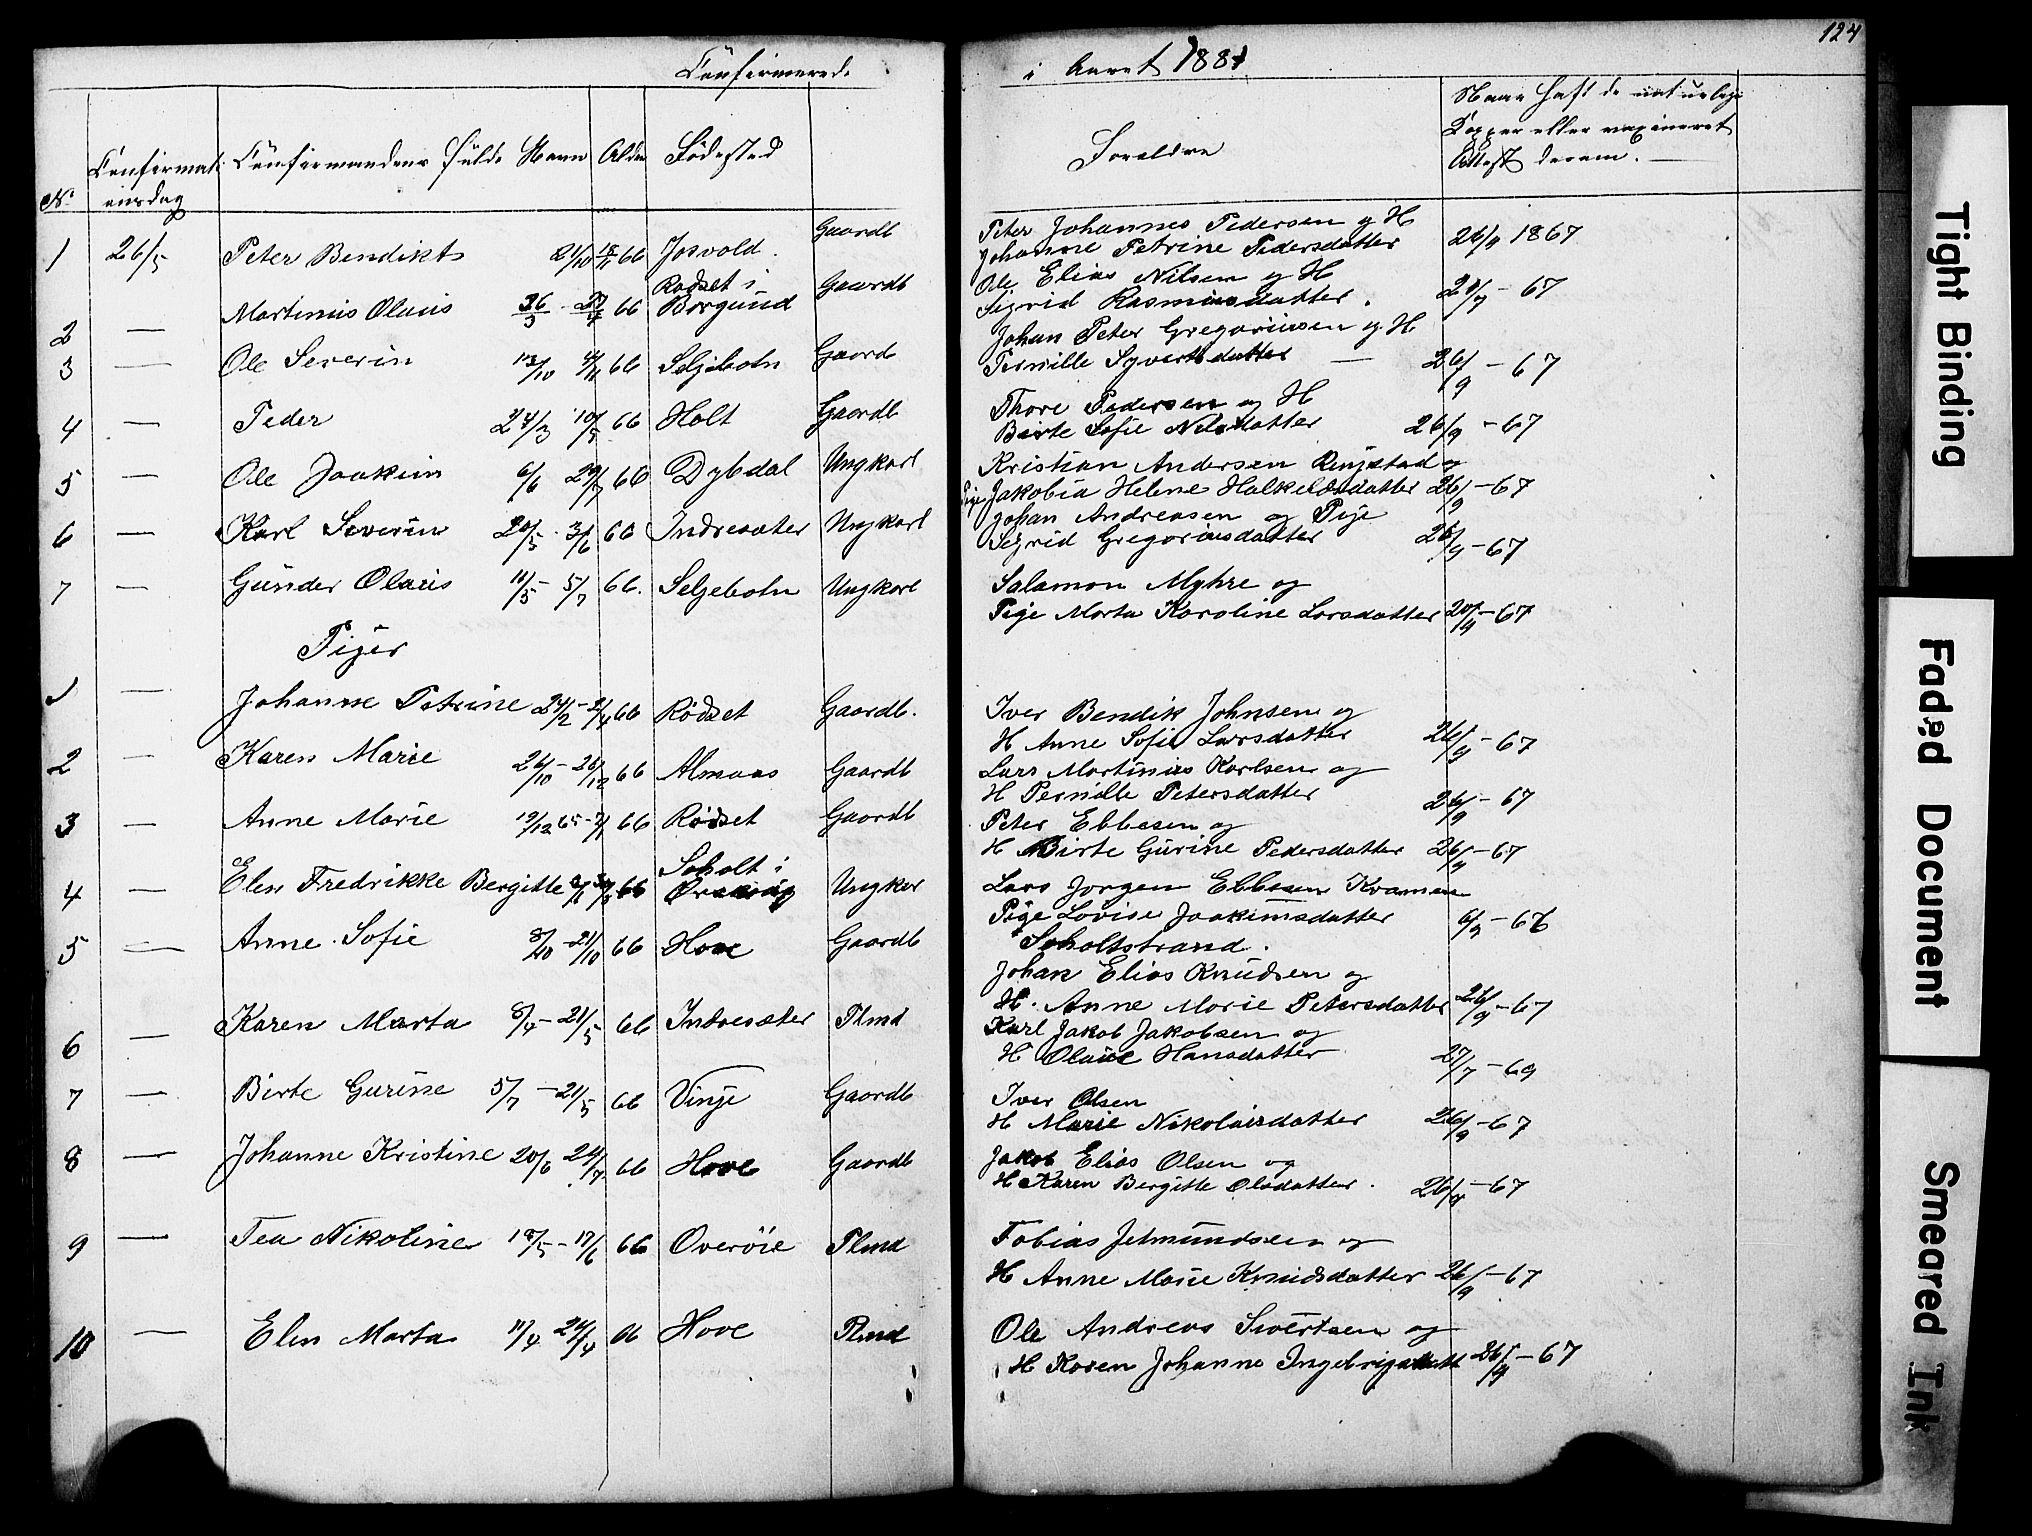 124
Confirmerede i Aaret 1881
No Confirmationsdag Confirmandens fulde Navn Alder Födested Forældre Naar haft de naturlige
Kopper eller vaxineret
Attest derom.
1 26/5 Peter Bendikts 66 Josvold. Gaardb Peter Johannes Pedersen og H
Johanne Petrine Pedersdatter 26/9 1867
2 — Martinus Olaus 66 Rødset i Borgund Gaardb Ole Elias Nilsen og H
Sigrid Rasmusdatter. - 67
3 — Ole Severin 66 Seljebotn Gaard Johan Peter Gregoriussen og H
Pernille Syvertsdatter — 26/9 - 67
4 — Peder 24/3 10/5 66 Holt Gaardb Thore Pedersen og H
Birte Sofie Nilsdatter 26/9 - 67
5 — Ole Joakim 6/6 66 Dybdal Ungkarl Kristian Andersen Ringstad og
Pige Jakobia Helene Halkelsdatter 26/9 - 67
6 — Karl Severin 20/5 · 3/6 66 Indresæter Ungkarl Johan Andreasen og Pige
Sigrid Gregoriusdatter 26/9 - 67
7 — Gunder Olaus 11/5 - 5/7 66. Seljebotn Ungkarl Salamon Myhre og
Pige Marta Karoline Larsdatter - 67
Piger
1 — Johanne Petrine 24/2 - 2/4 66 Rödset Gaardb. Iver Bendik Johnsen og
H Anne Sofie Larsdatter 26/9 - 67
2 — Karen Marie 26/10 - 26/12 66 Almaas Gaardb Lars Martinus Karlsen og
H Pernille Petersdatter 26/9 - 67
3 — Anne Marie 19/12 65 - 7/1 66 Rödset Gaardb Peter Ebbesen og
H Birte Gurine Pedersdatter 26/9 - 67
4 — Elen Fredrikke Bergitte 66 Soholt i Ørskoug Ungkar Lars Jorgen Ebbesen Kvamen
Pige Lovise Joakimsdatter 6/9 - 67
Soholtstrand.
5 — Anne Sofie 8/10 - 21/10 66 Hove Gaardb Johan Elias Knudsen og
H. Anne Marie Petersdatter 26/9 - 67
6 — Karen Marta 8/4 - 21/5 66 Indresæter Plmd Karl Jakob Jakobsen og
H Olave Hansdatter 27/7 - 69
7 — Birte Gurine 5/7 - 21/5 66 Vinje Gaardb Iver Olsen
H Marie Nikolaisdatter 26/9 - 67
8 — Johanne Kristine 20/6 24/7 66 Hove Gaardb Jakob Elias Olsen og
H Karen Bergitte Olsdatter. 26/9 - 67
9 — Tea Nikoline 18/5 - 17/6 66 Overöie Plmd Tobias Jetmundsen og
H Anne Marie Knudsdatter 26/9 - 67
10 — Elen Marta 11/4 24/4 66 Hove Plmd Ole Andreas Sivertsen og
H Karen Johanne Ingebrigsdatt 26/9 - 67
Tight Binding
Faded Document
Smeared Ink